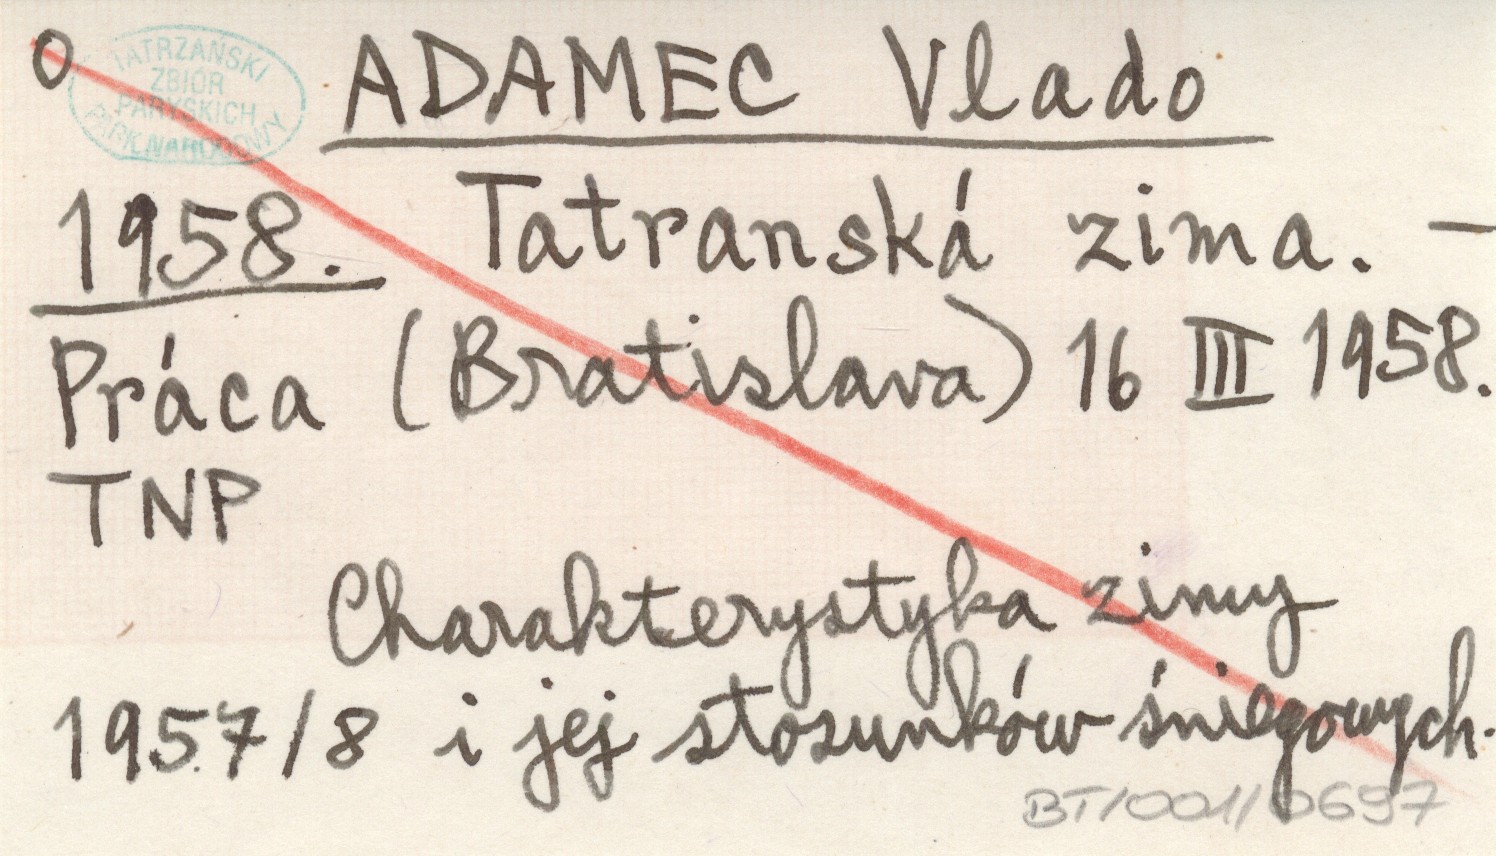 O
TATRZAŃSKI
ZBIÓR
PARYSKICH
PARK NARODOWY
ADAMEC Vlado
1958. Tatranská zima. —
Práca (Bratislava) 16 III 1958.
TNP
Charakterystyka zimy
1957/8 i jej stosunków śniegowych.
BT/001/0697